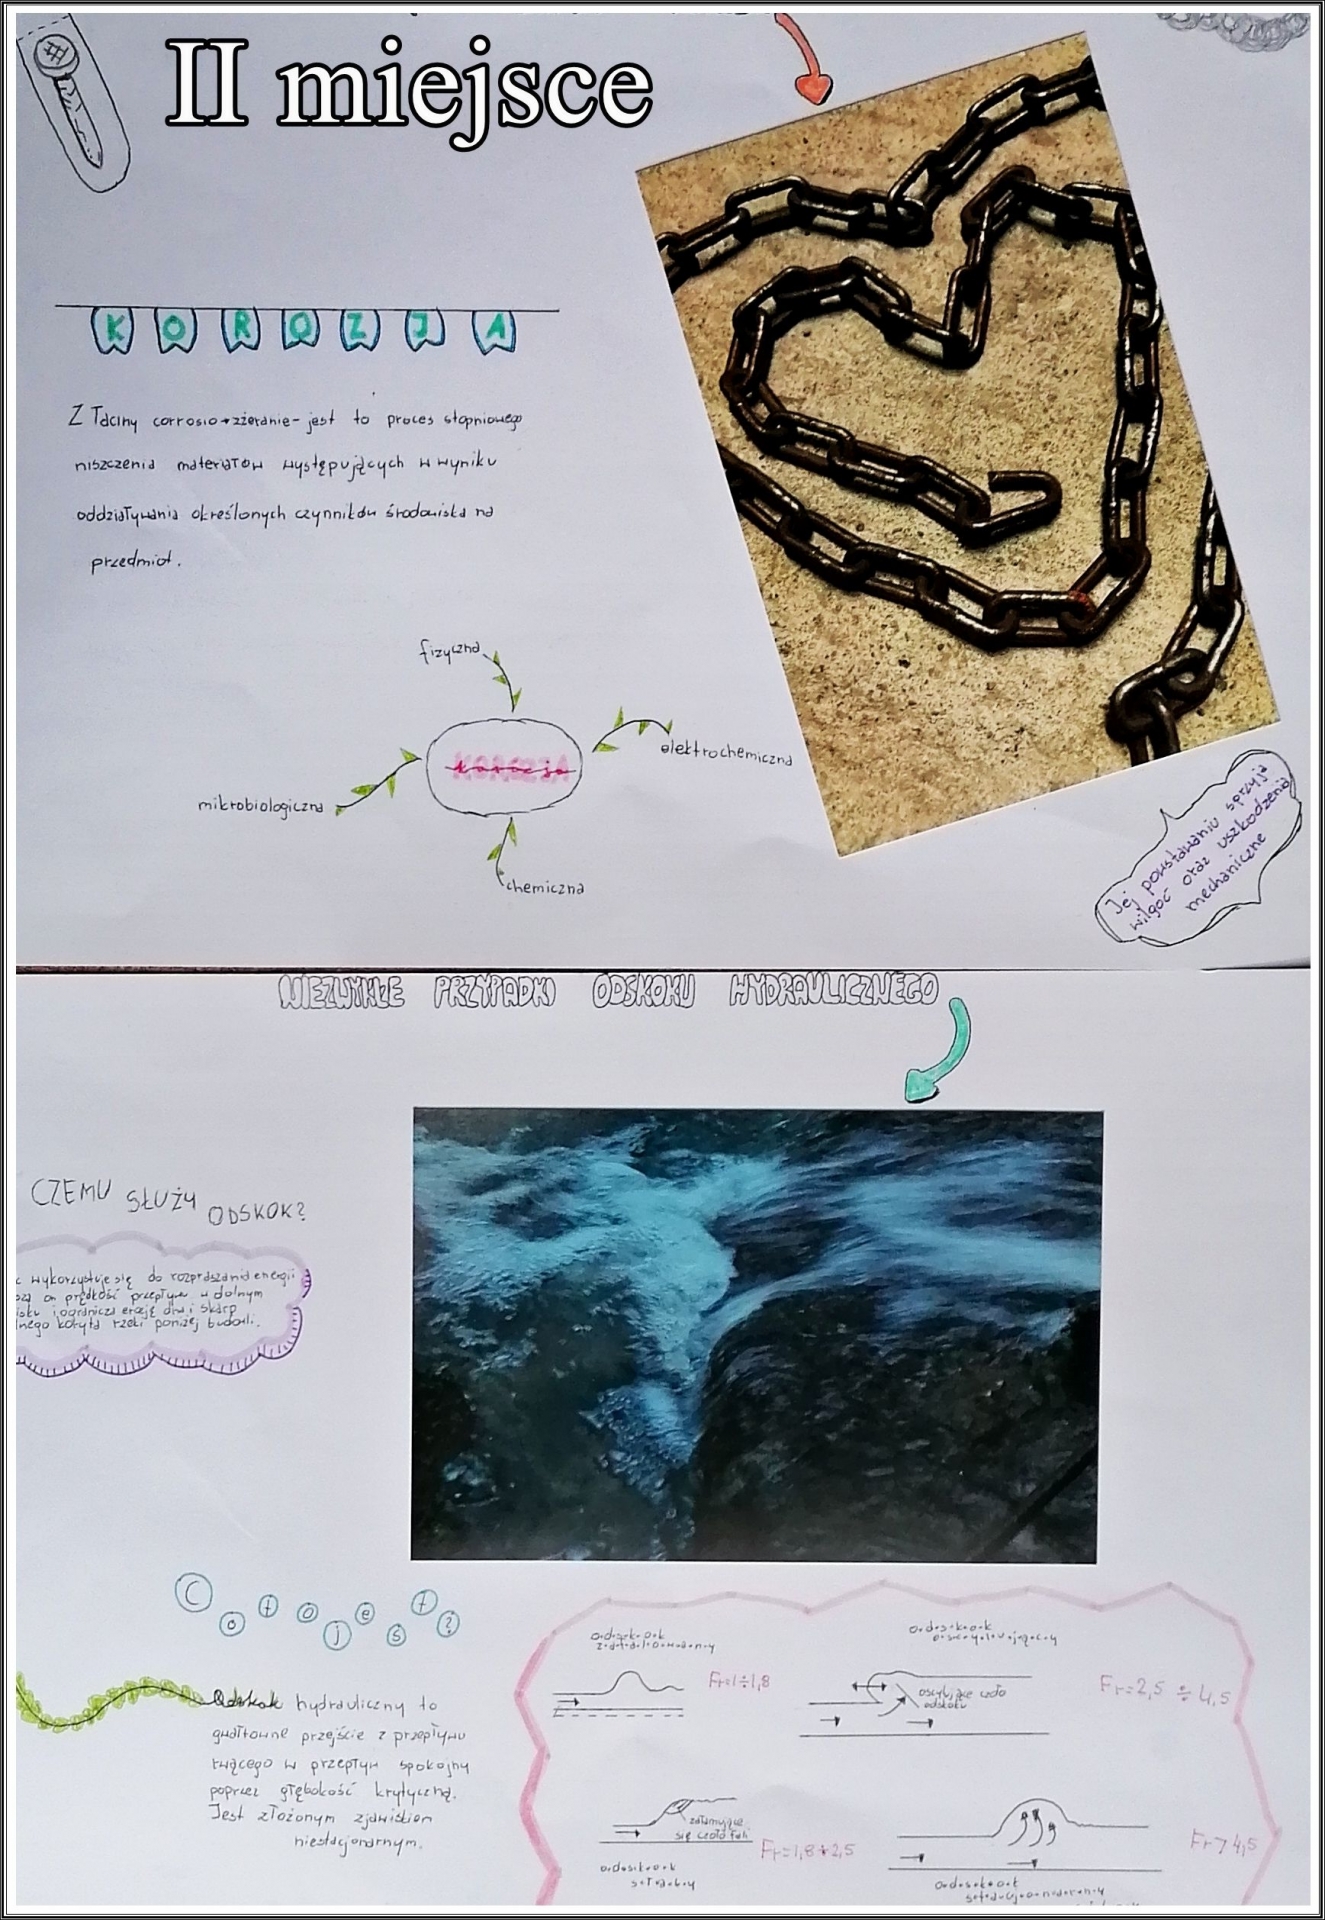 II miejsce
KOROZJA
Z łaciny corrosio → zżeranie - jest to proces stopniowego
niszczenia materiałów występujących w wyniku
oddziaływania określonych czynników środowiska na
przedmiot.
fizyczna
elektrochemiczna
korozja
mikrobiologiczna
chemiczna
Jej powstawaniu sprzyja
wilgoć oraz uszkodzenia
mechaniczne
NIEZWYKŁE PRZYPADKI ODSKOKU HYDRAULICZNEGO
CZEMU SŁUŻY ODSKOK?
wykorzystuje się do rozpraszania energii
on prędkość przepływu w dolnym
i ogranicza erozję dna i skarp
koryta rzeki poniżej budowli.
Co to jest?
Odskok hydrauliczny to
gwałtowne przejście z przepływu
rwącego w przepływ spokojny
poprzez głębokość krytyczną.
Jest złożonym zjawiskiem
niestacjonarnym.
odskok
zafalowany
Fr=1÷1,8
odskok
oscylujący
oscylujące czoło
odskoku
Fr=2,5 ÷ 4,5
załamujące
się czoło fali
Fr=1,8÷2,5
odskok
słaby
Fr>4,5
odskok